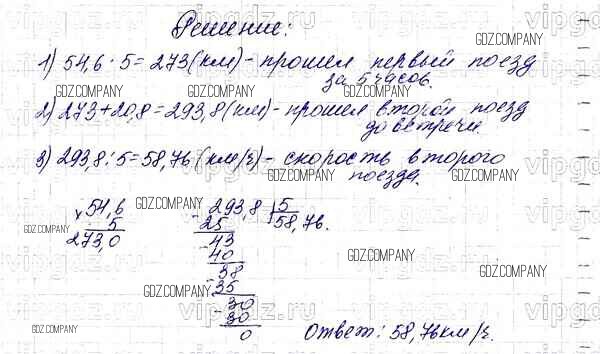 Решение:
1) 54,6 · 5 = 273 (км) - прошел первый поезд
за 5 часов.
2) 273 + 20,8 = 293,8 (км) - прошел второй поезд
до встречи.
3) 293,8 : 5 = 58,76 (км/ч) - скорость второго
поезда.
× 54,6
5
273,0
- 293,8 | 5
25 58,76.
- 43
40
- 38
35
- 30
30
0
Ответ: 58,76 км/ч.
GDZ.COMPANY
GDZ.COMPANY
GDZ.COMPANY
GDZ.COMPANY
GDZ.COMPANY
GDZ.COMPANY
GDZ.COMPANY
GDZ.COMPANY
GDZ.COMPANY
GDZ.COMPANY
GDZ.COMPANY
GDZ.COMPANY
vipgdz.ru